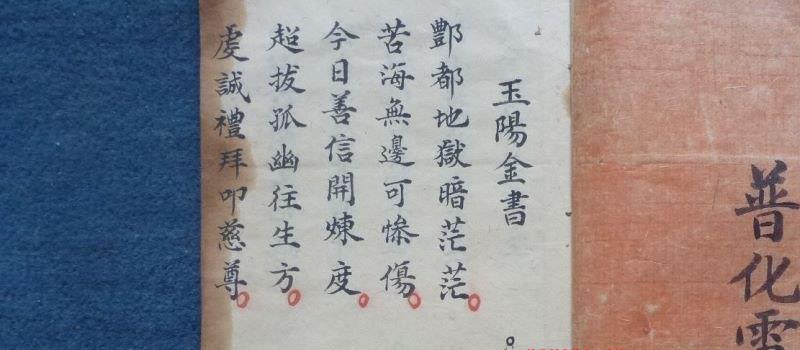 普化雷
玉陽金書
酆都地獄暗茫茫
苦海無邊可慘傷
今日善信開煉度
超拔孤幽往生方
虔誠禮拜叩慈尊